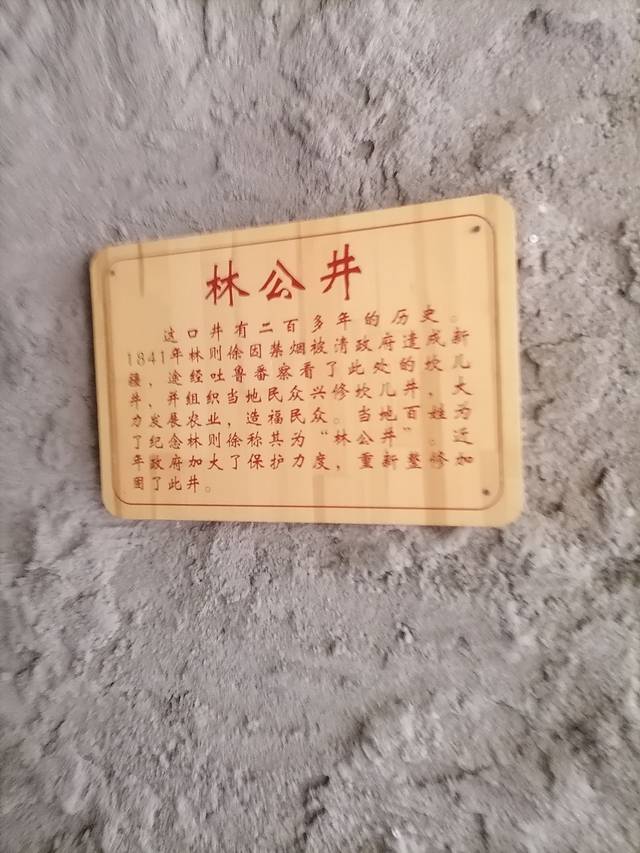 林公井
这口井有二百多年的历史。
1841年林则徐因禁烟被清政府遣戍新
疆，途经吐鲁番察看了此处的坎儿
井，并组织当地民众兴修坎儿井，大
力发展农业，造福民众。当地百姓为
了纪念林则徐称其为“林公井”。近
年政府加大了保护力度，重新整修加
固了此井。